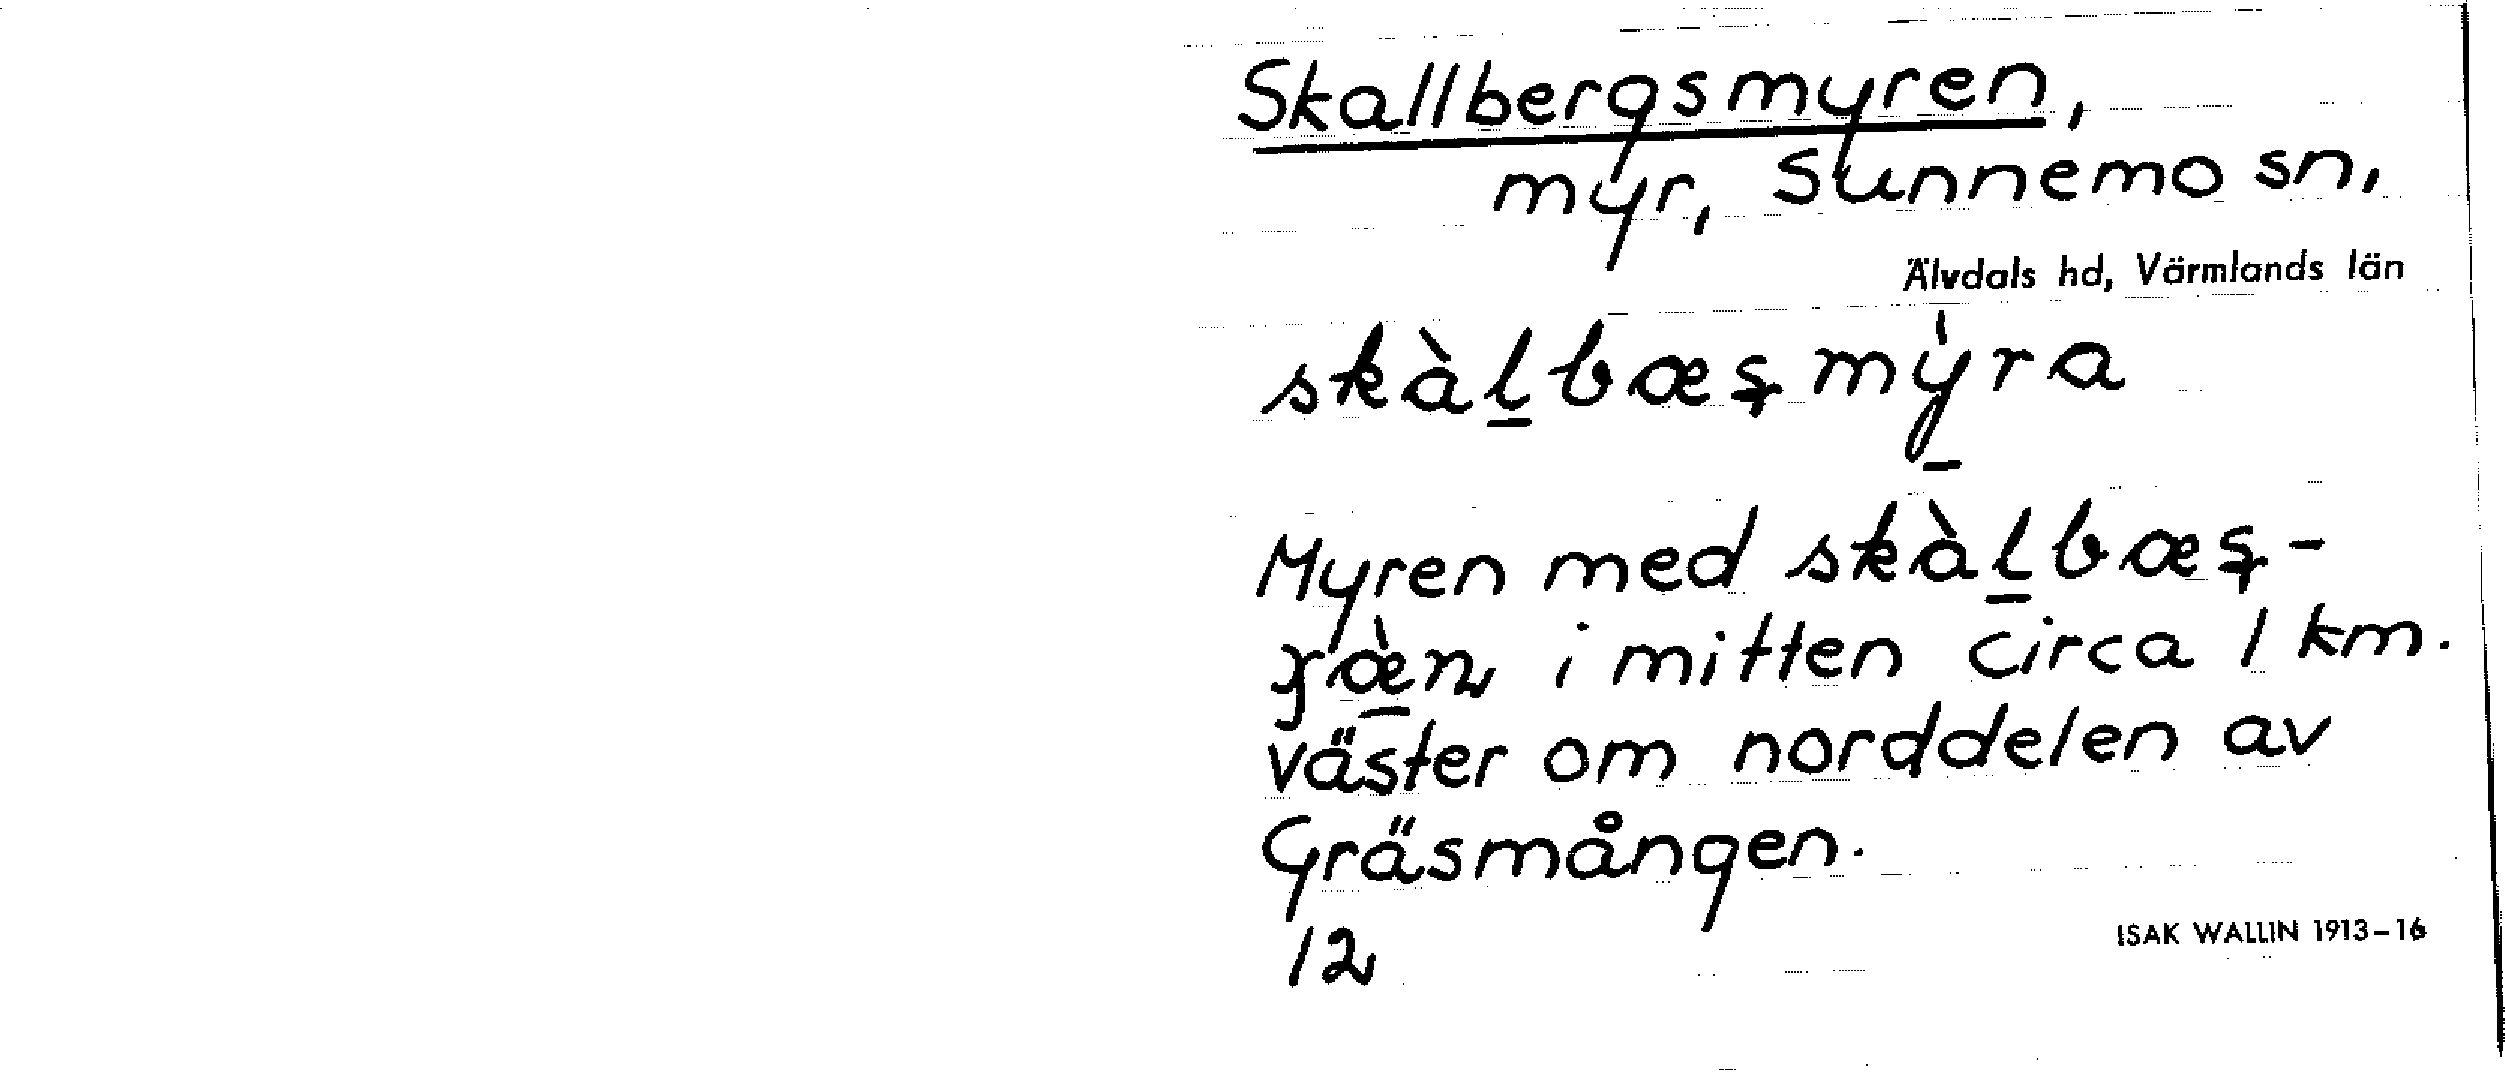 Skallbergsmyren,
myr, Sunnemo sn,
Älvdals hd, Värmlands län
skàl̲bæʂmỳ̲ra
Myren med skàl̲bæʂ-
i mitten circa 1 km.
väster om norddelen av
Gräsmången.
12
ISAK WALLIN 1913-16